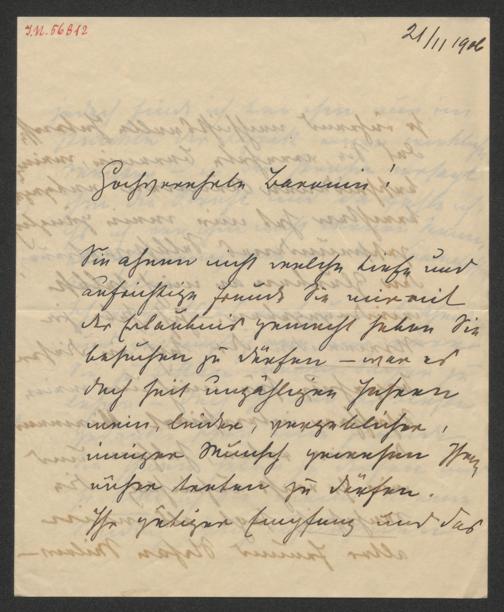 I.N. 56812
21/II 1906
Hochverehrte Baronin!
Sie ahnen nicht welche tiefe und
aufrichtige Freude Sie mir mit
der Erlaubnis gemacht haben Sie
besuchen zu dürfen – war es
doch seit unzähligen Jahren
mein, leider vergeblicher,
inniger Wunsch gewesen Ihnen
näher treten zu dürfen.
Ihr gütiger Empfang und das